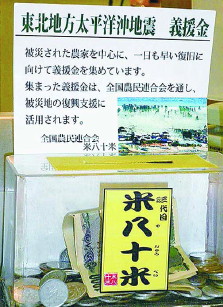 東北地方太平洋沖地震　義援金
被災された農家を中心に、一日も早い復旧に
向けて義援金を集めています。
集まった義援金は、全国農民連合会を通し、
被災地の復興支援に
活用されます。
全国農民連合会
米八十米
三代目
米八十米